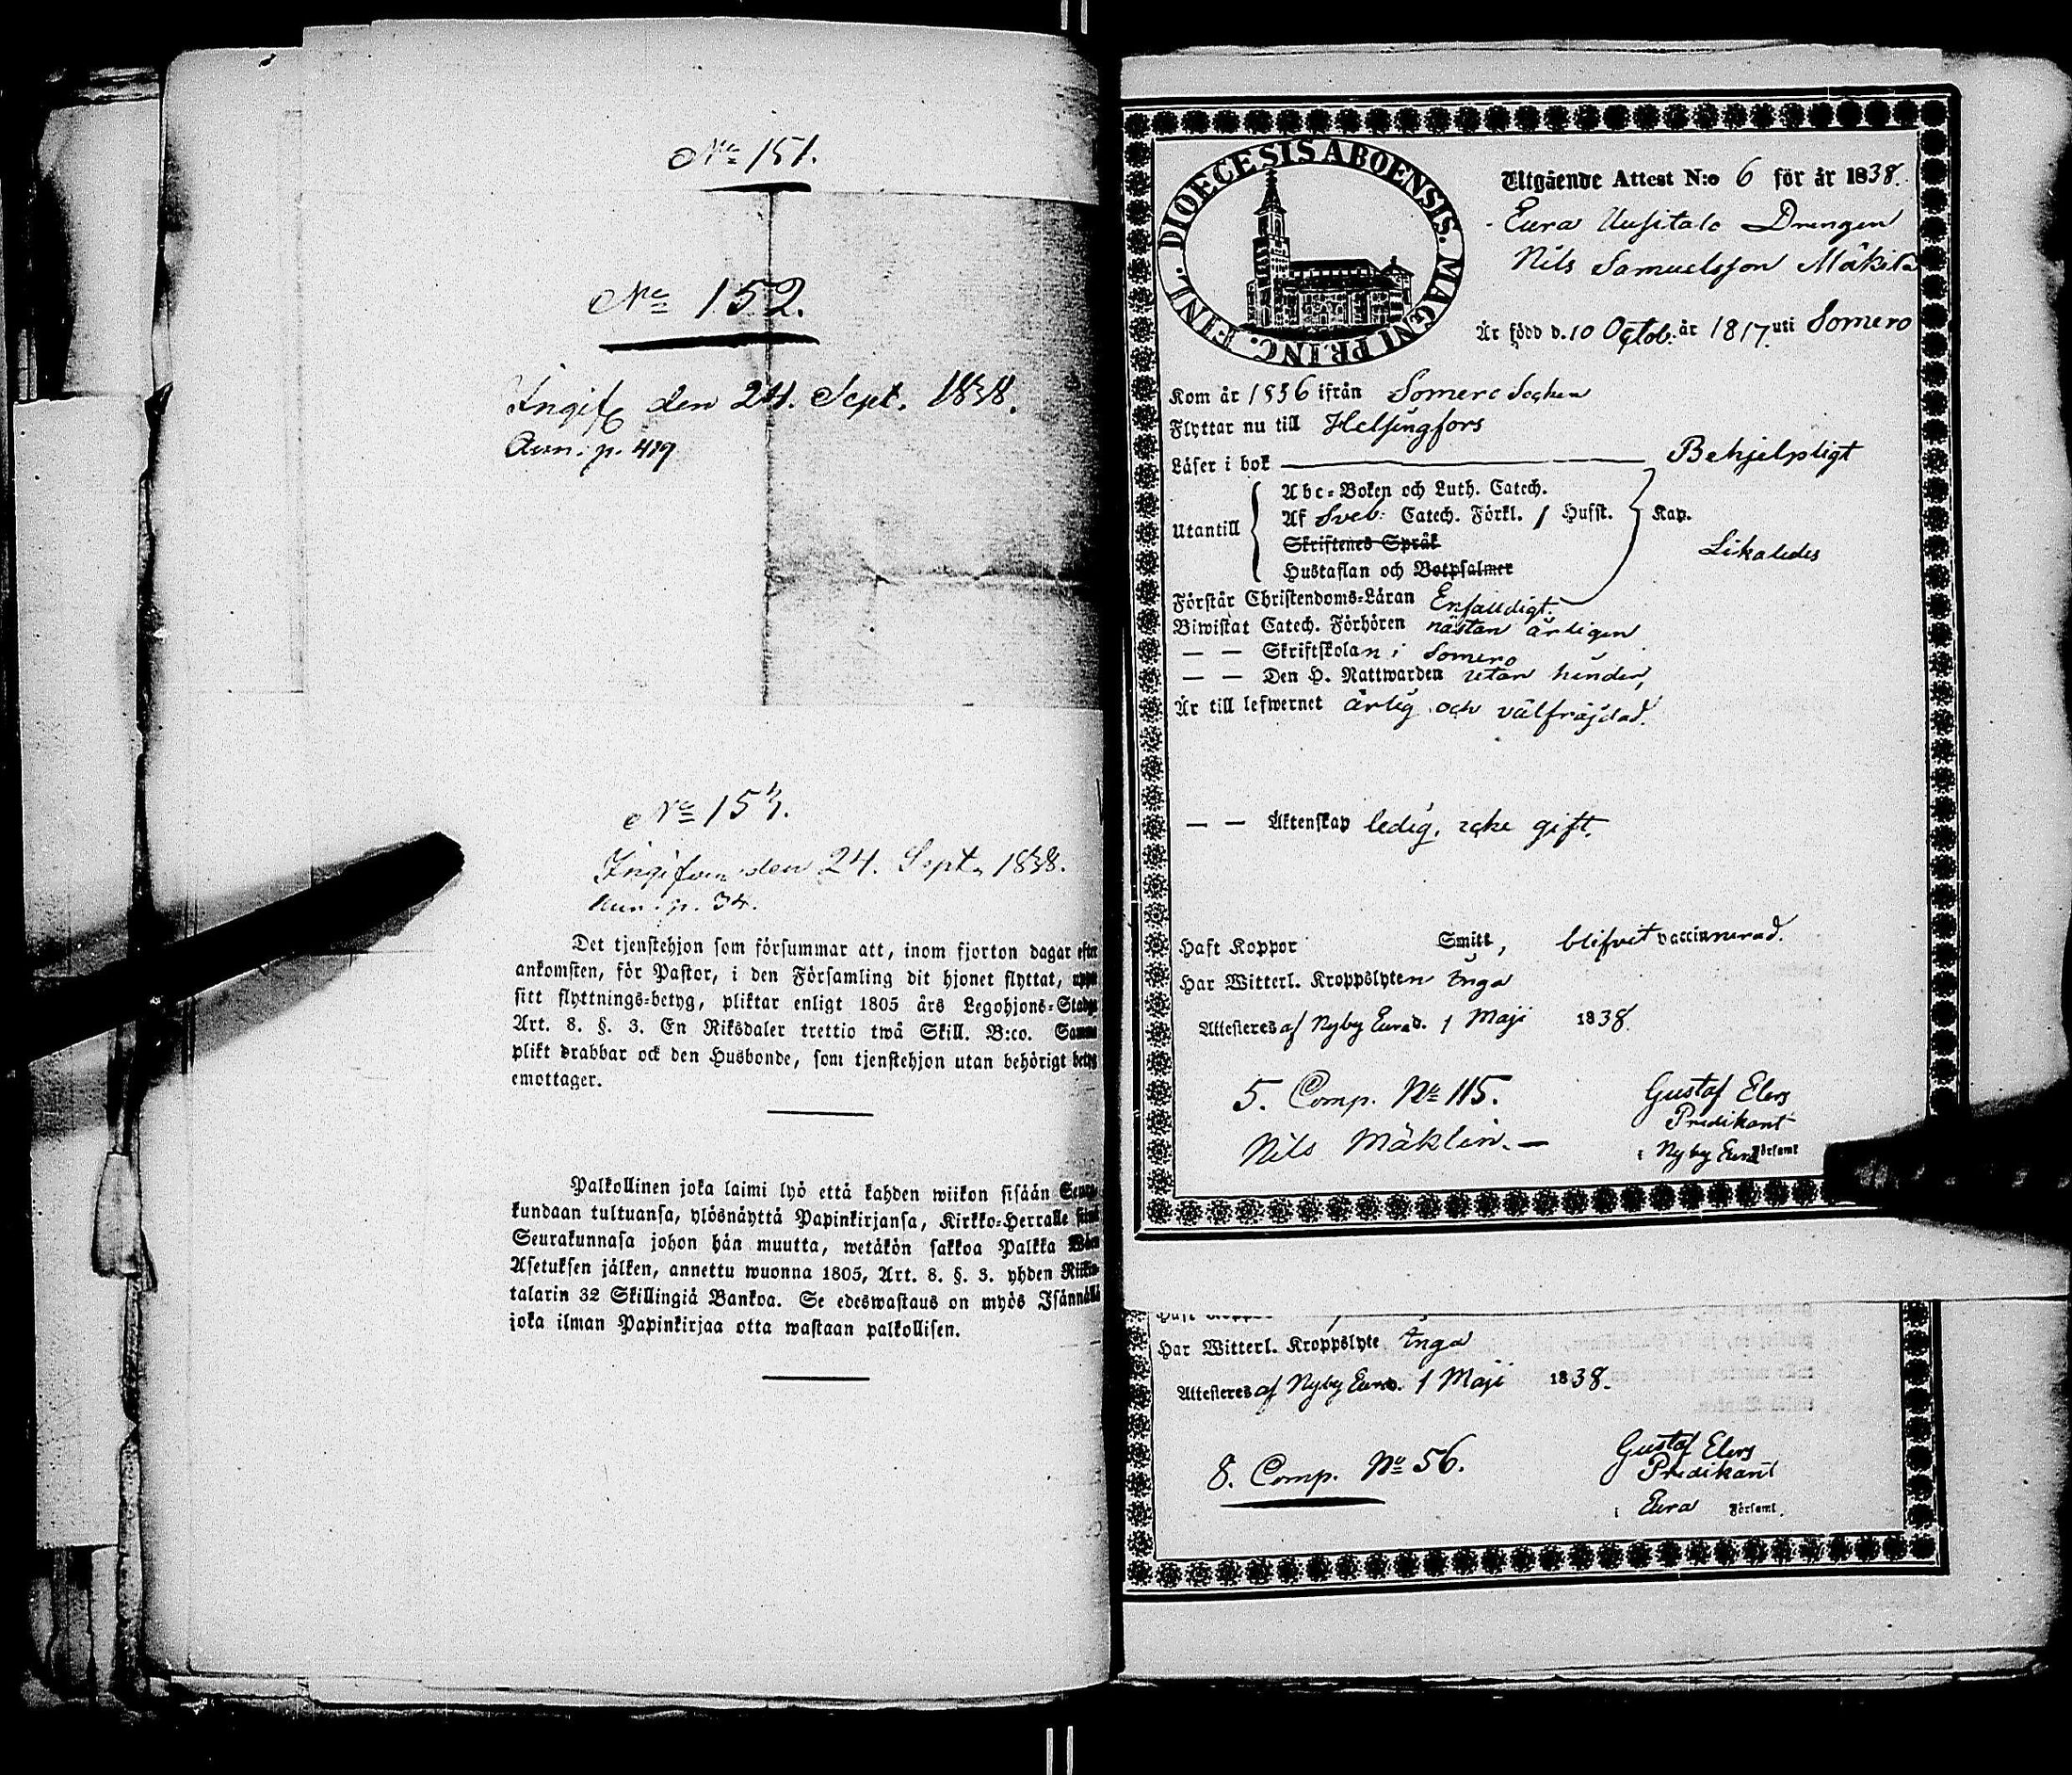 No 151.
No 152.
Ingif. den 24. Sept. 1838.
Ann. p. 419
No 153.
Ingifven den 24. Sept. 1838.
Ann. p. 34.
Det tjenstehjon som försummar att, inom fjorton dagar efter
ankomsten, för Pastor, i den Församling dit hjonet flyttat,
sitt flyttnings-betyg, pliktar enligt 1805 års Legohjons-Stadga
Art. 8. §. 3. En Riksdaler trettio twå Skill. B:co. Samma
plikt drabbar ock den Husbonde, som tjenstehjon utan behörigt betyg
emottager.
Palkollinen joka laimi lyö että kahden wiikon sisään Seura-
kundaan tultuansa, ylösnäyttä Papinkirjansa, Kirkko-Herralle siinä
Seurakunnasa johon hän muutta, wetäkön sakkoa Palkka Wäen
Asetuksen jälken, annettu wuonna 1805, Art. 8. §. 3. yhden Riikin-
talarin 32 Skillingiä Bankoa. Se edeswastaus on myös Isännällä
joka ilman Papinkirjaa otta wastaan palkollisen.
DIOECESIS ABOENSIS. MAGNI PRINC. FINL.
Utgående Attest N:o 6 för år 1838.
Eura Uusitalo Drengen
Nils Samuelsson Mäkilä
Är född d. 10 Octob. år 1817 uti Somero
Kom år 1836 ifrån Somero Socken
Flyttar nu till Helsingfors
Läser i bok Behjelpligt
Utantill
Abc-Boken och Luth. Catech.
Af Sveb: Catech. Förkl. / Husst. Kap.
Skriftenes Språk
Likaledes
Hustaflan och Botpsalmer
Förstår Christendoms-Läran Enfaldigt.
Biwistat Catech. Förhören nästan årligen
— — Skriftskolan i Somero
— — Den H. Nattwarden utan hinder,
Är till lefwernet ärlig och välfräjdad.
— — Äktenskap ledig, icke gift.
Haft Koppor Smitt, blifvit vaccinerad.
Har Witterl. Kroppslyten Inga
Attesteres af Nyby Eura d. 1 Maji 1838.
5. Comp. No 115.
Gustaf Elers
Predikant
Nils Mäklin. —
i Nyby Eura Församl
Haft Koppor
Har Witterl. Kroppslyte Inga
Attesteres af Nyby Eura d. 1 Maji 1838.
8. Comp. No 56.
Gustaf Elers
Predikant
i Eura Församl.